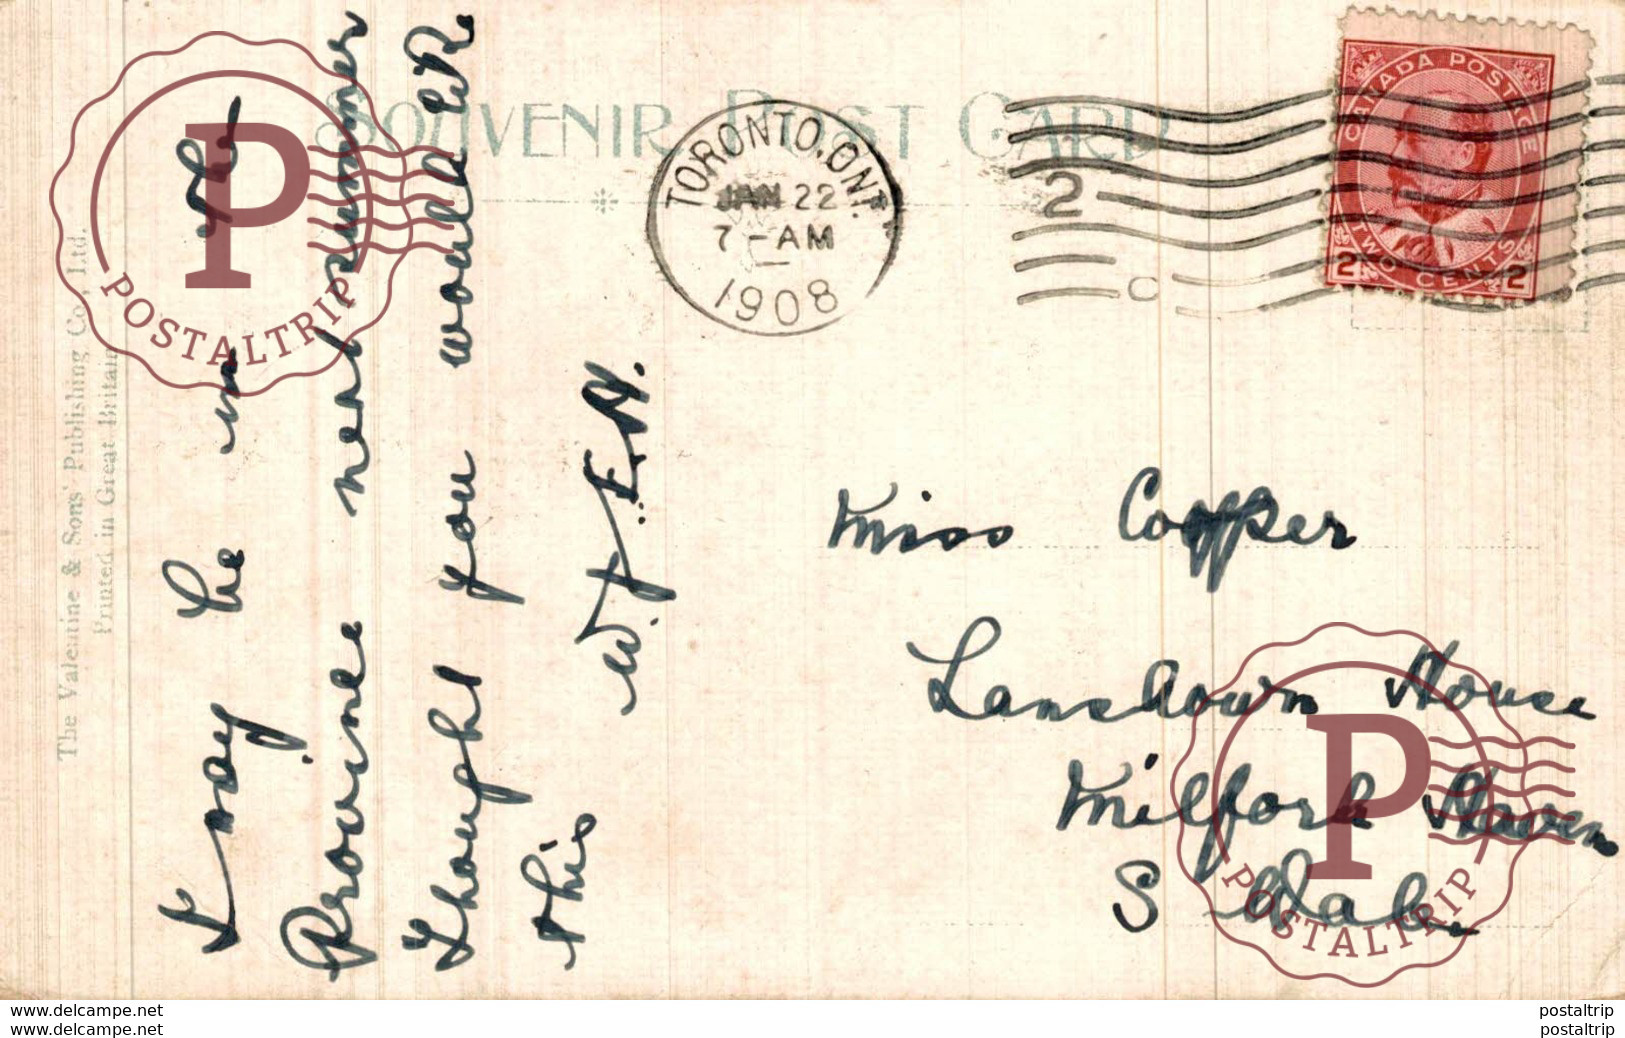 SOUVENIR POST CARD
TORONTO, ONT.
JAN 22
7 - AM
1908
2 C
CANADA POSTAGE
2 TWO CENTS 2
The Valentine & Sons' Publishing Co., Ltd.
Printed in Great Britain
I may be in the
Province next summer
Thought you would ER
this
W. J. E. H.
Miss Copper
Lansdown House
Milford Haven
S Wales
P
POSTALTRIP
P
POSTALTRIP
postaltrip
postaltrip
postaltrip
postaltrip